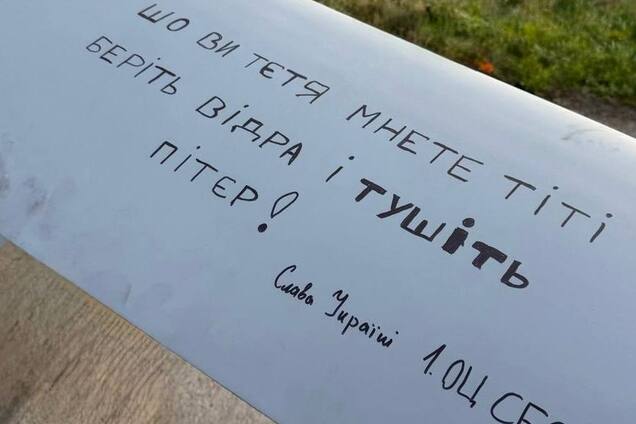 ШО ВИ ТЄТЯ МНЕТЕ ТІТІ
БЕРІТЬ ВІДРА І ТУШІТЬ
ПІТЄР!
Слава Україні
1.ОЦ СБС